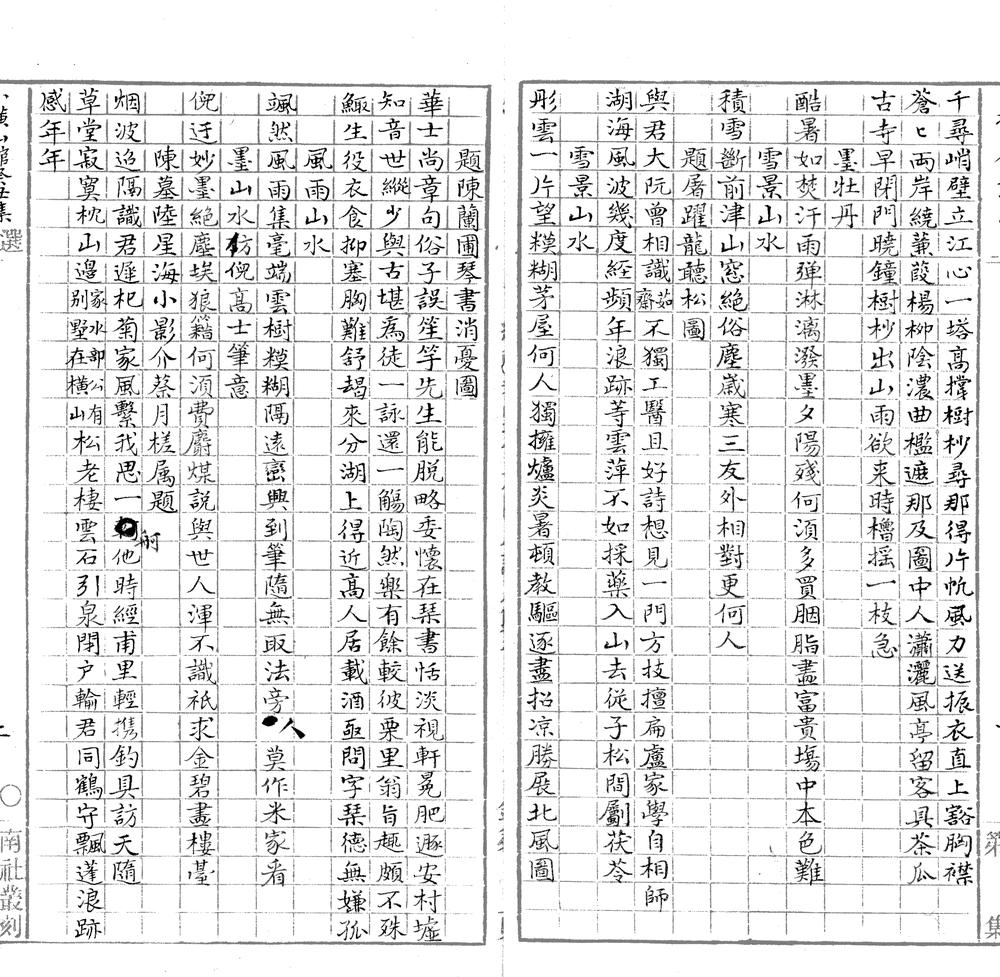 千尋峭壁立江心一塔高撐樹杪尋那得片帆風力送振衣直上豁胸襟
蒼匕兩岸繞蒹葭楊柳陰濃曲檻遮那及圖中人瀟灑風亭留客具茶瓜
古寺早閉門曉鐘樹杪出山雨欲来時櫓摇一枝急
墨牡丹
酷暑如焚汗雨渾淋漓潑墨夕陽殘何須多買胭脂畫富貴塲中本色難
雪景山水
積雪斷前津山窓絕俗塵歲寒三友外相對更何人
題屠躍龍聽松圖
與君大阮曾相識茹齋不獨工醫且好詩想見一門方技擅扁盧家學自相師
湖海風波幾度経頻年浪跡等雲萍不如採藥入山去從子松間劚茯苓
雪景山水
彤雲一片望糢糊茅屋何人獨擁爐炎暑頓教驅逐盡招凉勝展北風圖
題陳蘭圃琴書消憂圖
華士尚章句俗子誤笙竽先生能脱略委懷在琹書恬淡視軒冕肥遯安村墟
知音世縱少與古堪爲徒一詠還一觴陶然樂有餘較彼栗里翁旨趣頗不殊
鯫生役衣食抑塞胸難舒朅來分湖上得近高人居載酒亟問字琹德無嫌孤
風雨山水
颯然風雨集毫端雲樹糢糊隔遠巒興到筆隨無取法旁人莫作米家看
墨山水仿倪高士筆意
倪迂妙墨絕塵埃狼籍何須費麝煤説與世人渾不識祇求金碧畫樓臺
陳墓陸星海小影介蔡月槎属題
烟波迢隔識君遲杞菊家風繫我思一舸他時經甫里輕携釣具訪天隨
草堂寂寞枕山邉家水部公有別墅在横山松老棲雲石引泉閉户輸君同鶴守飄蓬浪跡
感年年
選
南社叢刻
第
集